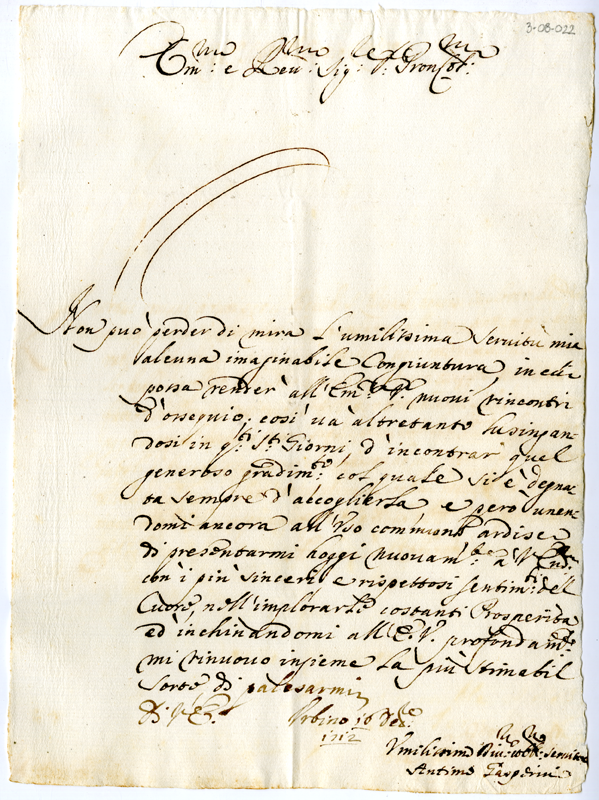 3-08-022
Em:mo e Reu:mo Sig:re P.rone Col:mo
Non può perder di mira l'umilissima seruitù mia
alcuna imaginabile Congiuntura, in cui
possa render all'Em:za V. nuoui rincontri
d'ossequio; così uà altretanto lusingan-
dosi in q:ti S:ti Giorni, d'incontrar quel
generoso gradim:to, col quale si è degna-
ta sempre d'accoglierla e però unen-
domi ancora all'Vso commune ardisco
di presentarmi hoggi nuouam:te à V. Em:za
con i più sinceri e rispettosi sentim:ti del
Cuore, nell'implorarLe costanti Prosperità
ed inchinandomi all'E.V. profondam:te
mi rinuouo insieme la più stimabil
sorte di palesarmi
Di V.E. Vrbino 16 Dec:e
1712
Vmilissimo Diu:mo Obl:mo Seruitore
Antimo Gasperini